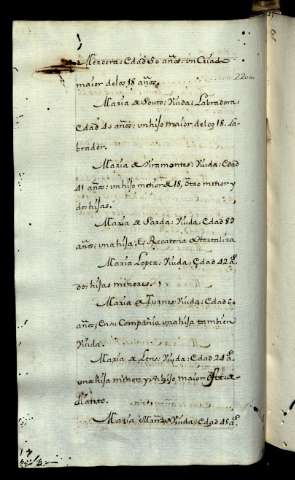 Mercera: Edad 50 años: un Criado
maior de los 18 años.
Maria de Souto: Viuda: Labradora:
Edad 40 años: un hijo maior de los 18. La-
brador.
Maria de Viramontes: Viuda: Edad
41 años: un hijo menor de 18, otro menor y
dos hijas.
Maria de Parda: Viuda: Edad 50
años: una hija; Es Recatera
Maria Lopez: Viuda: Edad 42 a.s
dos hijas menores.
Maria de Viuda: Edad 60
años; En su Compañia una hija tambien
Viuda.
Maria de Viuda: Edad 24 a.s
una hija menor, y
Platero.
Maria Viuda: Edad 45 a.s